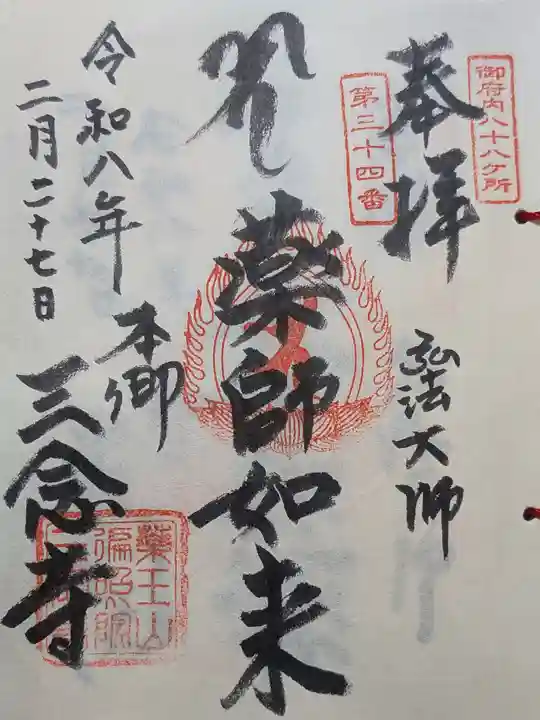 御府内八十八ケ所
奉拝
第三十四番
弘法大師
薬師如来
本郷
三念寺
令和八年
二月二十七日
薬王山
遍照院